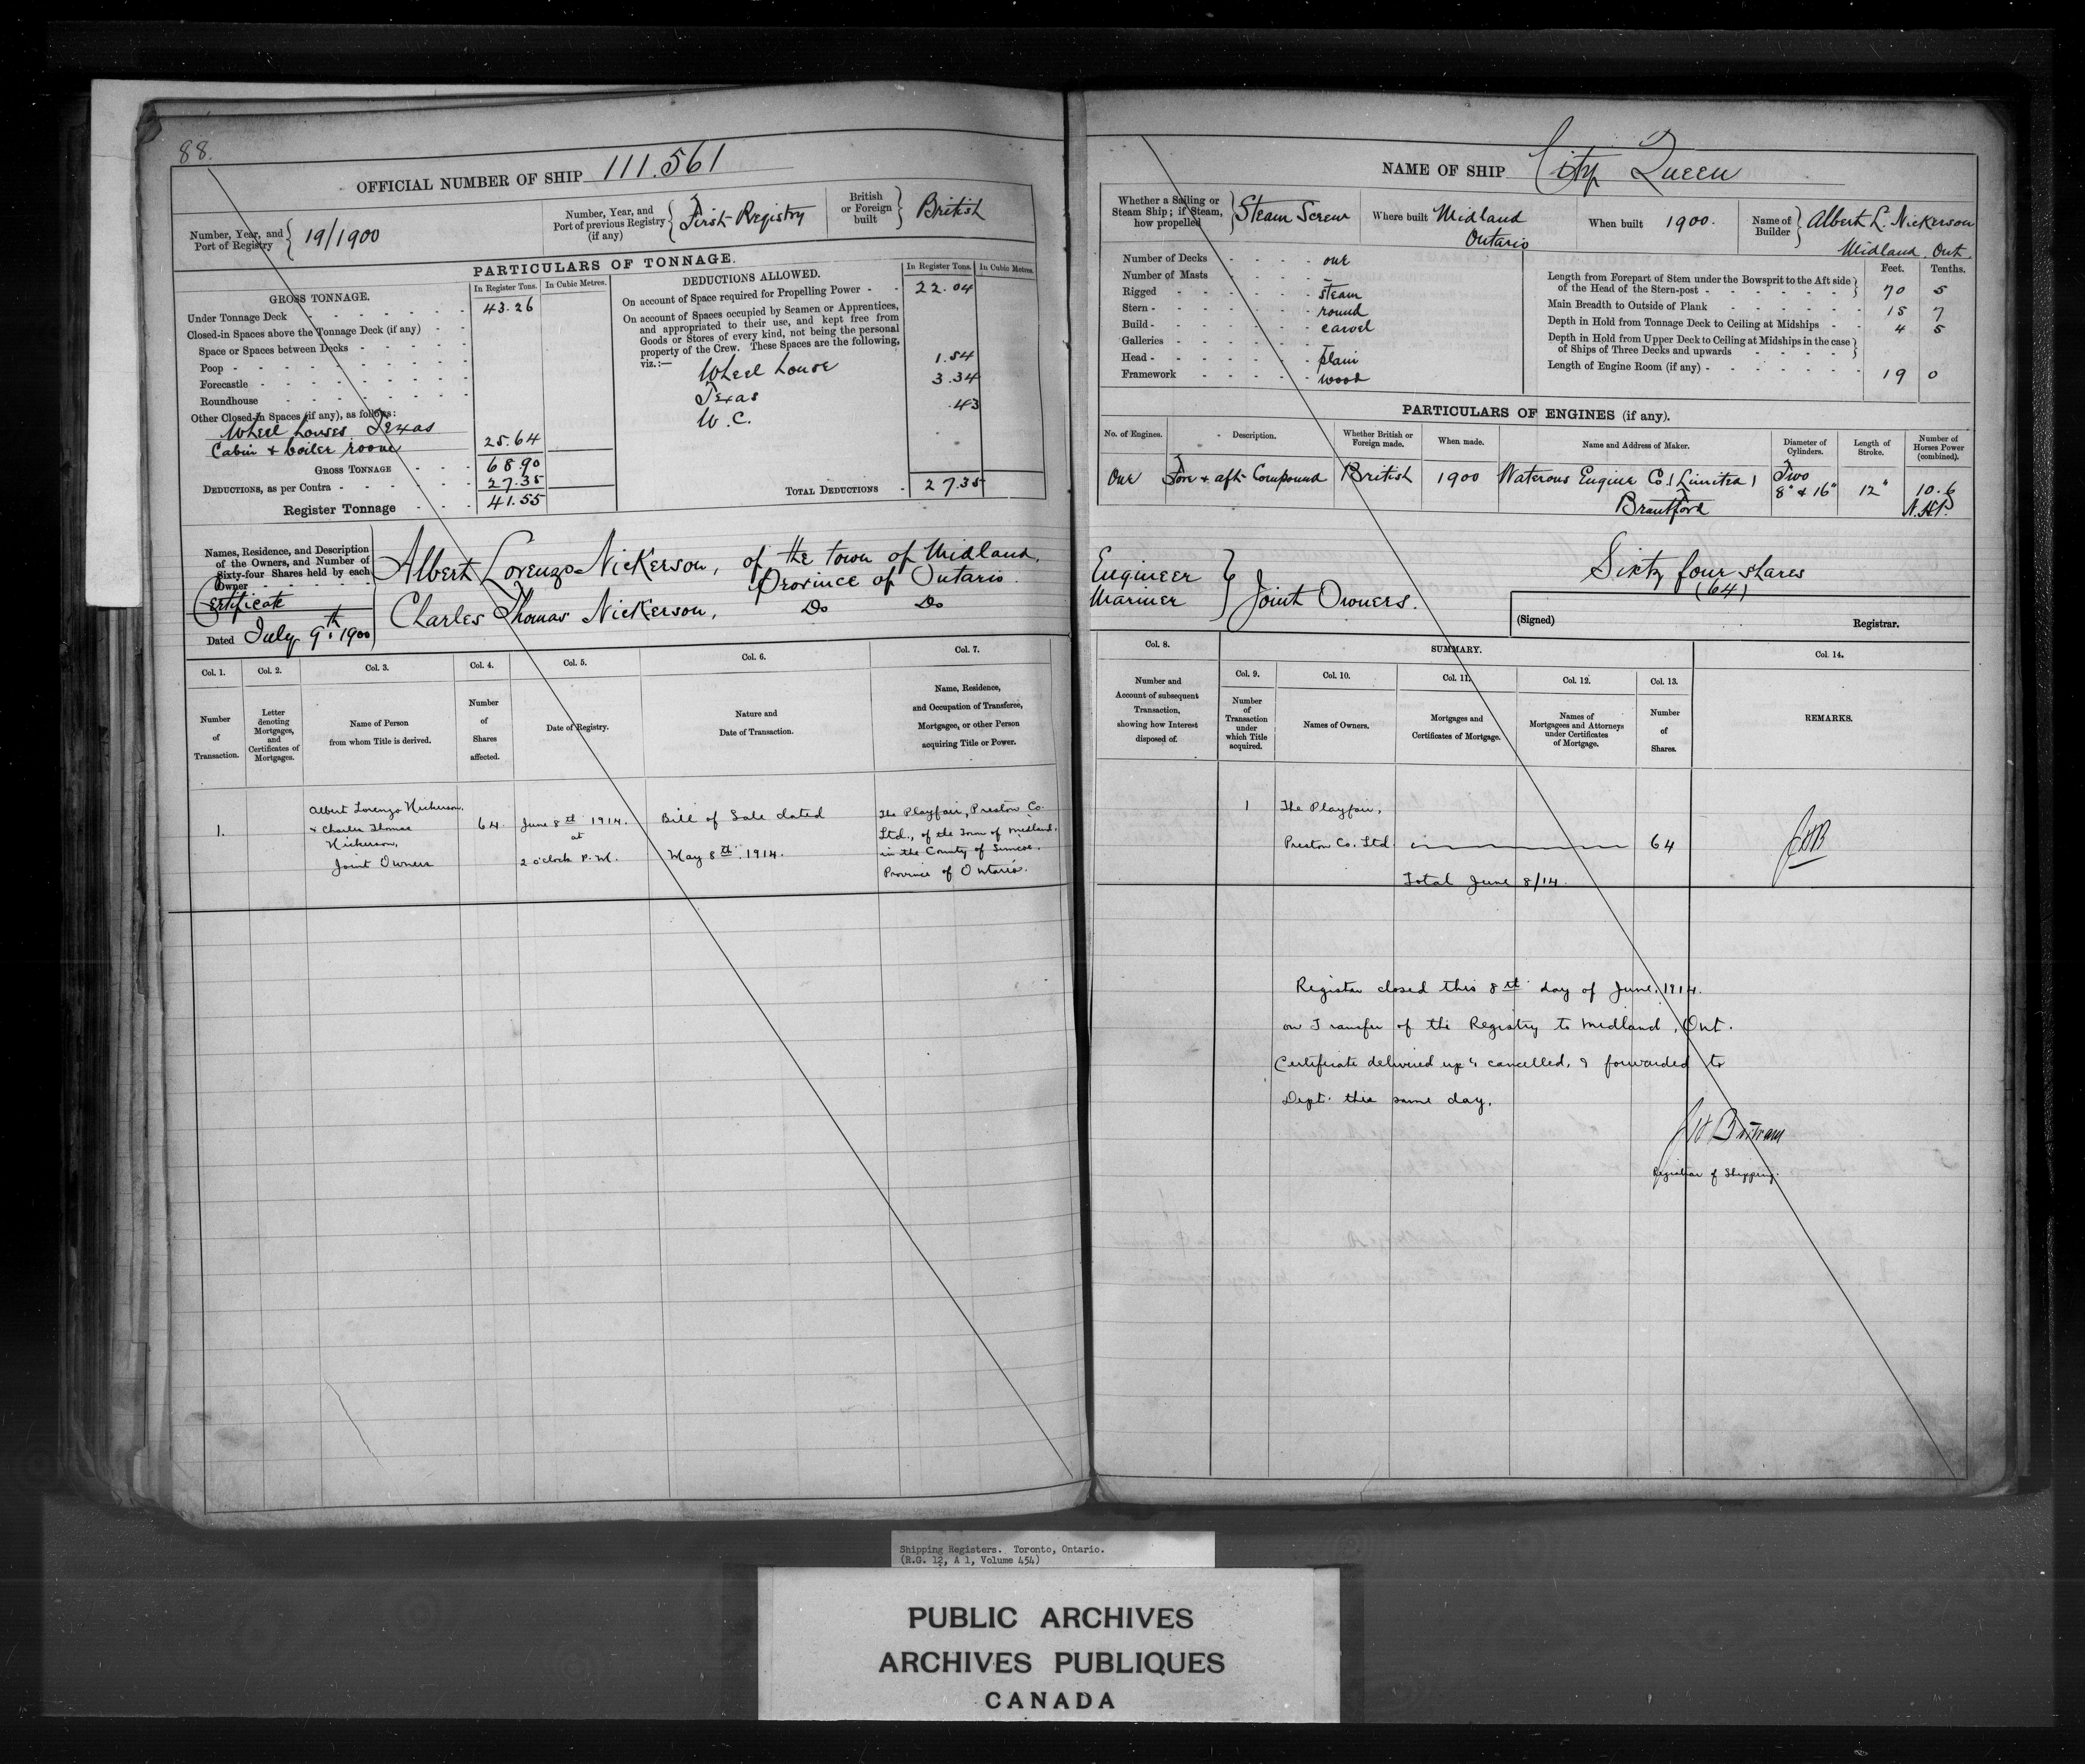 88.
OFFICIAL NUMBER OF SHIP 111.561
Number, Year, and Port of Registry 19/1900
Number, Year, and Port of previous Registry (if any) First Registry
British or Foreign built British
PARTICULARS OF TONNAGE.
GROSS TONNAGE.
In Register Tons. In Cubic Metres.
Under Tonnage Deck 43.26
Closed-in Spaces above the Tonnage Deck (if any)
Space or Spaces between Decks
Poop
Forecastle
Roundhouse
Other Closed-in Spaces (if any), as follows:
Wheel houses Texas
Cabin & boiler room 25.64
GROSS TONNAGE 68.90
DEDUCTIONS, as per Contra 27.35
Register Tonnage 41.55
DEDUCTIONS ALLOWED.
In Register Tons. In Cubic Metres.
On account of Space required for Propelling Power 22.04
On account of Spaces occupied by Seamen or Apprentices,
and appropriated to their use, and kept free from
Goods or Stores of every kind, not being the personal
property of the Crew. These Spaces are the following,
viz.:—
Wheel house 1.54
Texas 3.34
W.C. .43
TOTAL DEDUCTIONS 27.35
Names, Residence, and Description
of the Owners, and Number of
Sixty-four Shares held by each
Owner
Certificate
Dated July 9th 1900
Albert Lorenzo Nickerson, of the town of Midland,
Province of Ontario.
Charles Thomas Nickerson, Do Do
Col. 1. Col. 2. Col. 3. Col. 4. Col. 5. Col. 6. Col. 7.
Number of Transaction.
Letter denoting Mortgages, and Certificates of Mortgages.
Name of Person from whom Title is derived.
Number of Shares affected.
Date of Registry.
Nature and Date of Transaction.
Name, Residence, and Occupation of Transferee, Mortgagee, or other Person acquiring Title or Power.
1.
Albert Lorenzo Nickerson,
& Charles Thomas
Nickerson,
Joint Owners
64.
June 8th 1914.
at
2 o'clock P.M.
Bill of Sale dated
May 8th 1914.
The Playfair, Preston Co.
Ltd., of the Town of Midland,
in the County of Simcoe,
Province of Ontario.
NAME OF SHIP City Queen
Whether a Sailing or Steam Ship; if Steam, how propelled Steam Screw
Where built Midland Ontario
When built 1900.
Name of Builder Albert L. Nickerson
Midland Ont.
Number of Decks one
Number of Masts –
Rigged steam
Stern round
Build carvel
Galleries –
Head plain
Framework wood
Feet. Tenths.
Length from Forepart of Stem under the Bowsprit to the Aft side
of the Head of the Stern-post 70 5
Main Breadth to Outside of Plank 15 7
Depth in Hold from Tonnage Deck to Ceiling at Midships 4 5
Depth in Hold from Upper Deck to Ceiling at Midships in the case
of Ships of Three Decks and upwards
Length of Engine Room (if any) 19 0
PARTICULARS OF ENGINES (if any).
No. of Engines. Description. Whether British or Foreign made. When made. Name and Address of Maker. Diameter of Cylinders. Length of Stroke. Number of Horses Power (combined).
One Fore & aft Compound British 1900 Waterous Engine Co. (Limited) Brantford Two 8" & 16" 12" 10.6 N.H.P.
Engineer
Mariner
Joint Owners.
Sixty four shares
(64)
(Signed) Registrar.
Col. 8. SUMMARY. Col. 14.
Col. 9. Col. 10. Col. 11. Col. 12. Col. 13.
Number and Account of subsequent Transaction, showing how Interest disposed of.
Number of Transaction under which Title acquired.
Names of Owners.
Mortgages and Certificates of Mortgage.
Names of Mortgagees and Attorneys under Certificates of Mortgage.
Number of Shares.
REMARKS.
1 The Playfair,
Preston Co. Ltd. 64
Total June 8/14.
Register closed this 8th day of June, 1914.
on Transfer of the Registry to Midland, Ont.
Certificate delivered up & cancelled, & forwarded to
Dept. this same day.
Registrar of Shipping.
Shipping Registers. Toronto, Ontario.
(R.G. 12, A 1, Volume 454)
PUBLIC ARCHIVES
ARCHIVES PUBLIQUES
CANADA